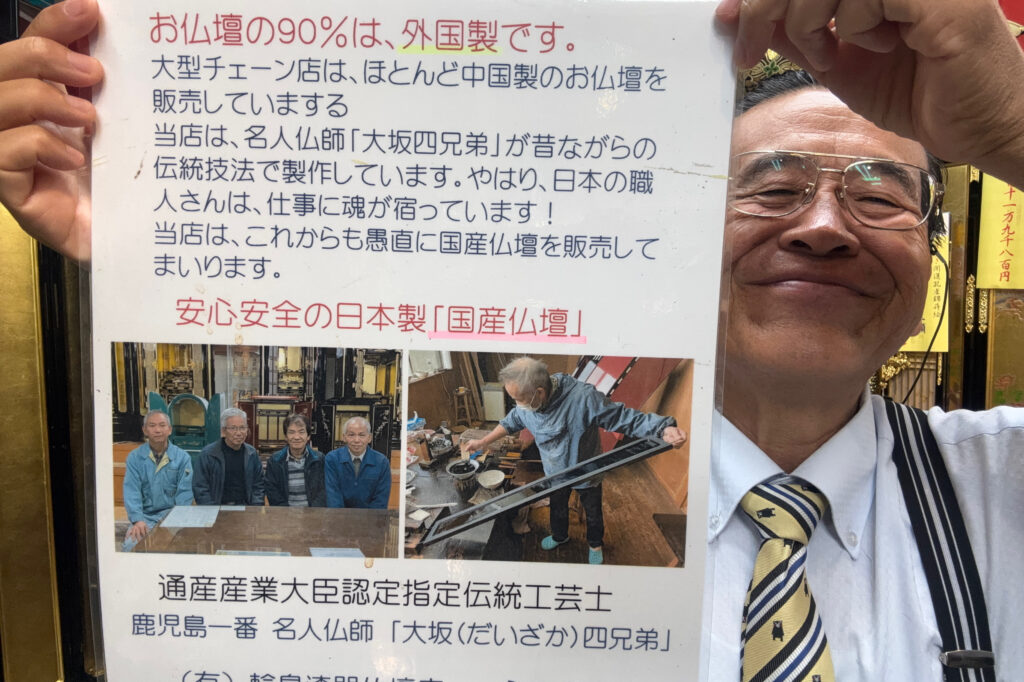 お仏壇の90%は、外国製です。
大型チェーン店は、ほとんど中国製のお仏壇を
販売していまする
当店は、名人仏師「大坂四兄弟」が昔ながらの
伝統技法で製作しています。やはり、日本の職
人さんは、仕事に魂が宿っています！
当店は、これからも愚直に国産仏壇を販売して
まいります。
安心安全の日本製「国産仏壇」
通産産業大臣認定指定伝統工芸士
鹿児島一番 名人仏師 「大坂(だいざか)四兄弟」
十一万九千八百円